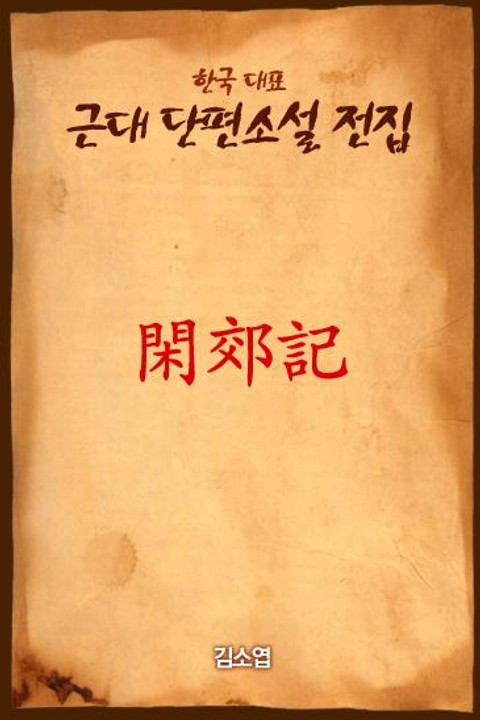 한국 대표
근대 단편소설 전집
閑郊記
김소엽